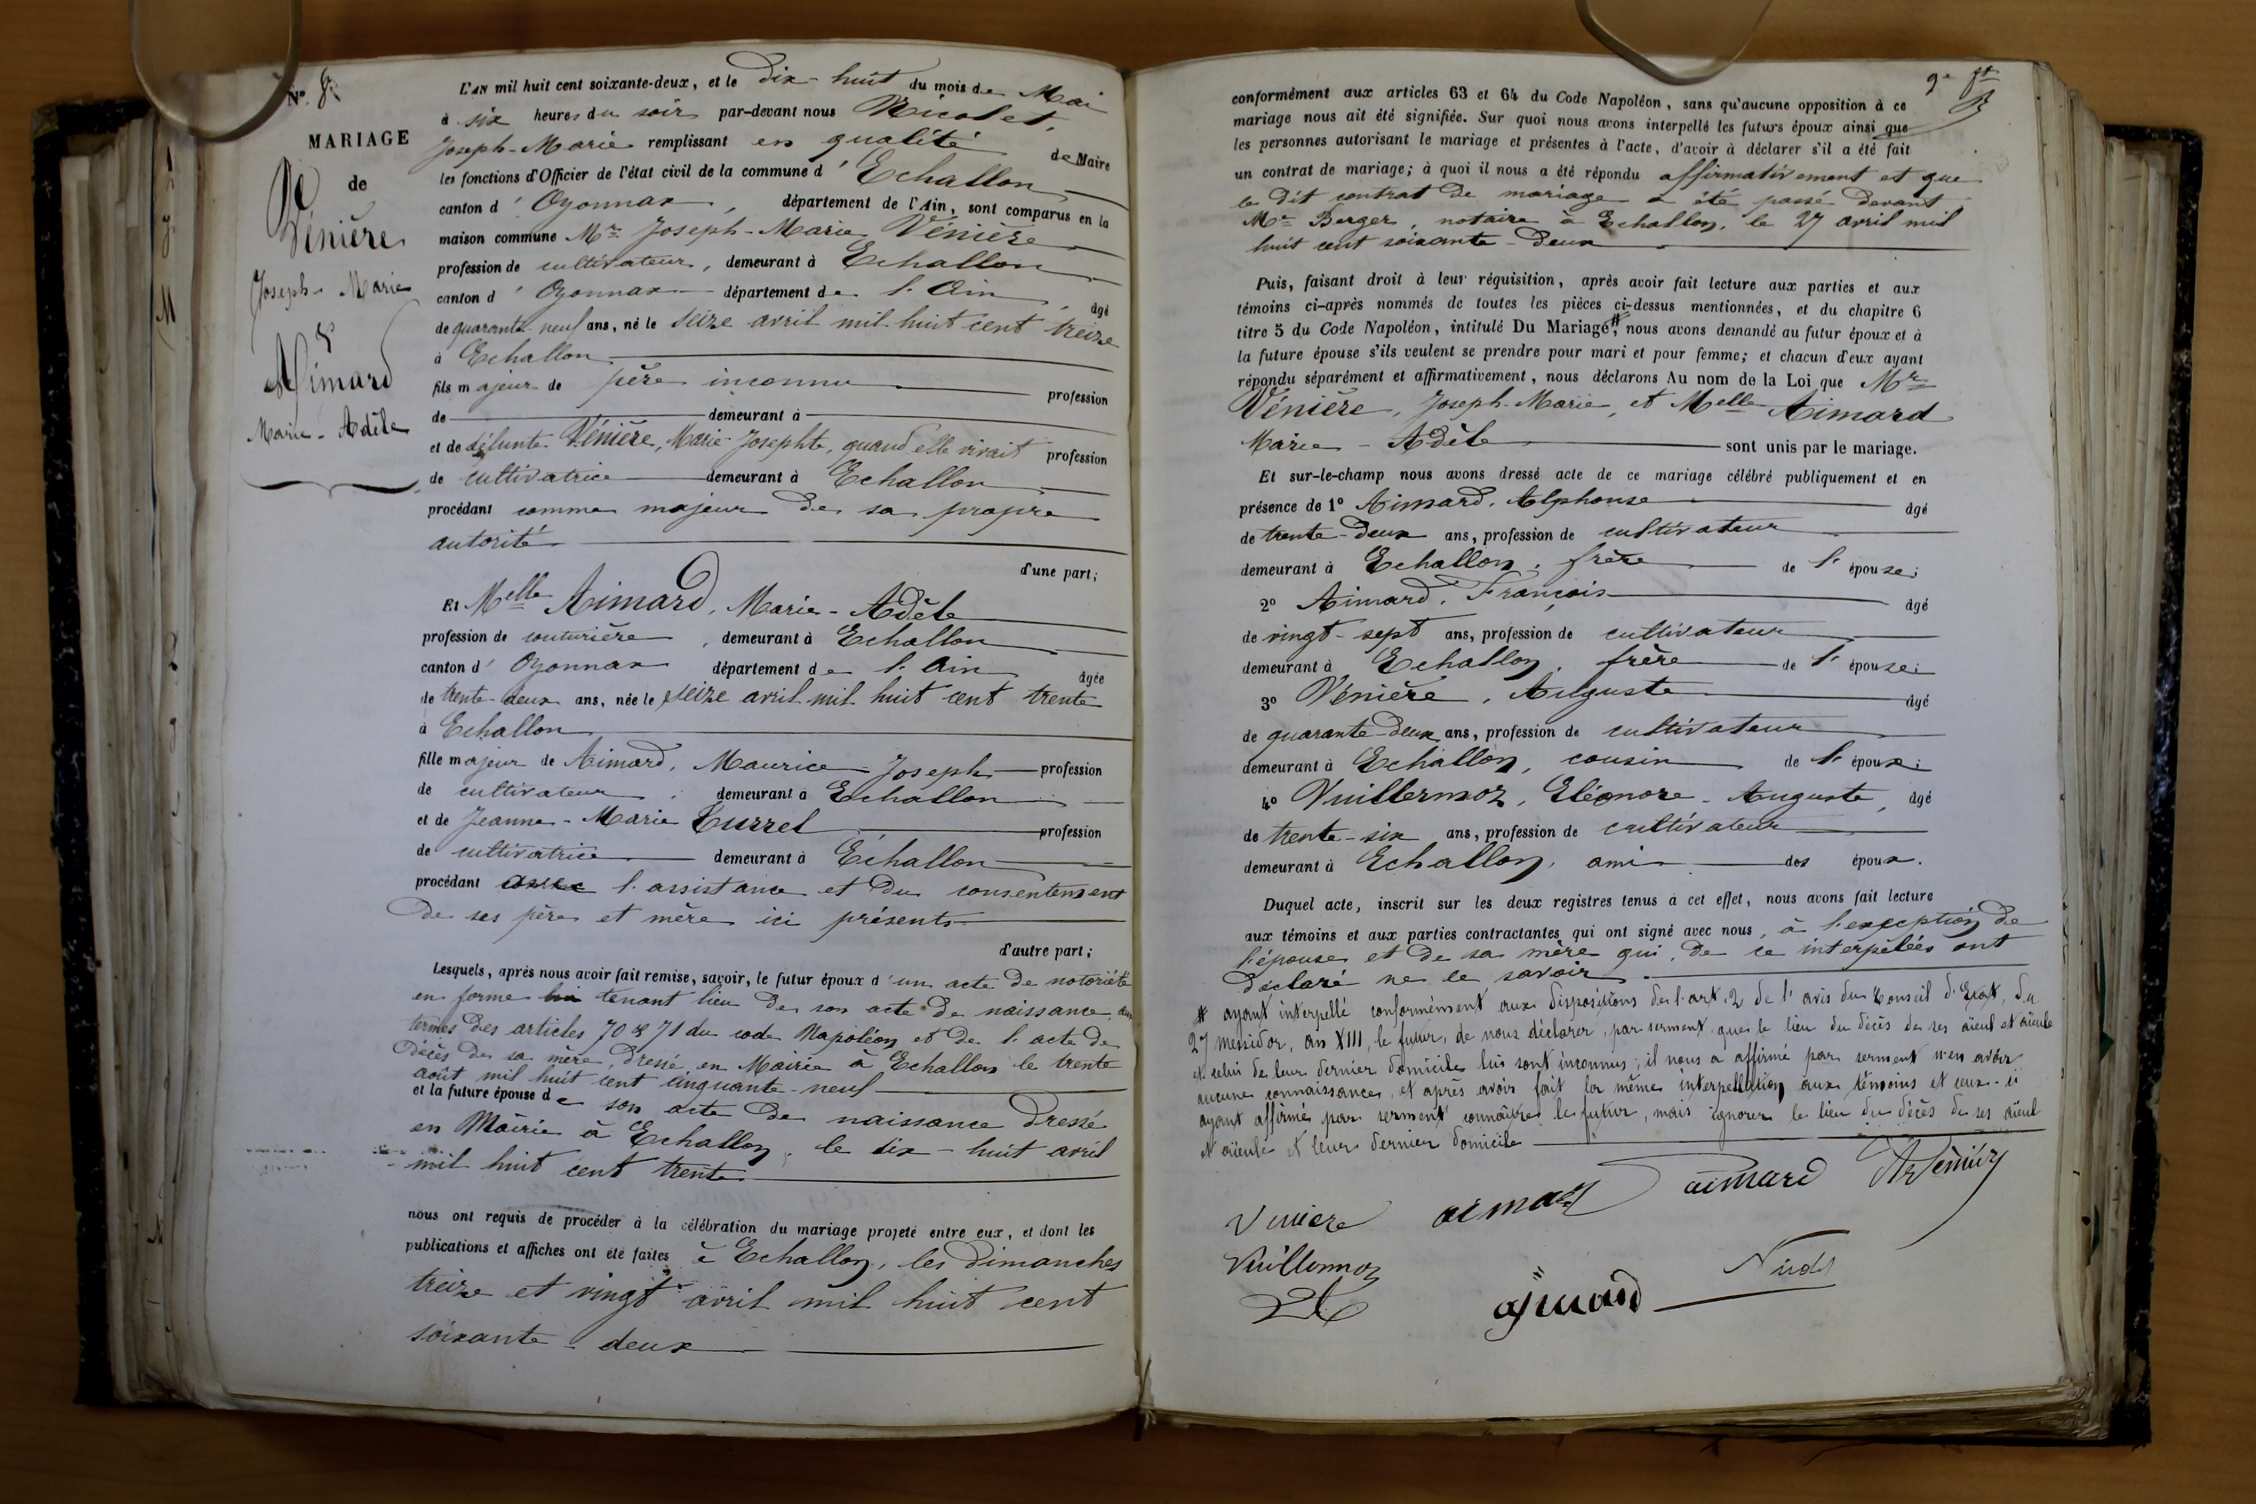 N° 8
MARIAGE
de
Vénière
Joseph-Marie
&
Aimard
Marie-Adèle
L'AN mil huit cent soixante-deux, et le dix-huit du mois de Mai
à six heures du soir par-devant nous Nicolet,
Joseph-Marie remplissant en qualité de Maire
les fonctions d'Officier de l'état civil de la commune d'Echallon
canton d'Oyonnax, département de l'Ain, sont comparus en la
maison commune Mr Joseph-Marie Vénière
profession de cultivateur, demeurant à Echallon
canton d'Oyonnax département de l'Ain, âgé
de quarante-neuf ans, né le seize avril mil huit cent treize
à Echallon
fils majeur de père inconnu profession
de demeurant à
et de défunte Vénière, Marie-Josephte, quand elle vivait profession
de cultivatrice demeurant à Echallon
procédant comme majeur de sa propre
autorité
d'une part;
Et Melle Aimard, Marie-Adèle
profession de couturière, demeurant à Echallon
canton d'Oyonnax département de l'Ain âgée
de trente-deux ans, née le seize avril mil huit cent trente
à Echallon
fille majeur de Aimard, Maurice-Joseph profession
de cultivateur, demeurant à Echallon
et de Jeanne-Marie Turrel profession
de cultivatrice demeurant à Echallon
procédant avec l'assistance et du consentement
de ses père et mère ici présents
d'autre part;
Lesquels, après nous avoir fait remise, savoir, le futur époux d'un acte de notoriété
en forme tenant lieu de son acte de naissance, aux
termes des articles 70 & 71 du code Napoléon et de l'acte de
décès de sa mère, dressé en Mairie à Echallon le trente
août mil huit cent cinquante-neuf
et la future épouse de son acte de naissance dressé
en Mairie à Echallon, le dix-huit avril
mil huit cent trente
nous ont requis de procéder à la célébration du mariage projeté entre eux, et dont les
publications et affiches ont été faites à Echallon, les dimanches
treize et vingt avril mil huit cent
soixante-deux
9e ft
conformément aux articles 63 et 64 du Code Napoléon, sans qu'aucune opposition à ce
mariage nous ait été signifiée. Sur quoi nous avons interpellé les futurs époux ainsi que
les personnes autorisant le mariage et présentes à l'acte, d'avoir à déclarer s'il a été fait
un contrat de mariage; à quoi il nous a été répondu affirmativement et que
le dit contrat de mariage a été passé devant
Mr Berger, notaire à Echallon, le 27 avril mil
huit cent soixante-deux
Puis, faisant droit à leur réquisition, après avoir fait lecture aux parties et aux
témoins ci-après nommés de toutes les pièces ci-dessus mentionnées, et du chapitre 6
titre 5 du Code Napoléon, intitulé Du Mariage #, nous avons demandé au futur époux et à
la future épouse s'ils veulent se prendre pour mari et pour femme; et chacun d'eux ayant
répondu séparément et affirmativement, nous déclarons Au nom de la Loi que Mr
Vénière, Joseph-Marie, et Melle Aimard
Marie-Adèle sont unis par le mariage.
Et sur-le-champ nous avons dressé acte de ce mariage célébré publiquement et en
présence de 1° Aimard, Alphonse âgé
de trente-deux ans, profession de cultivateur
demeurant à Echallon, frère de l'épouse;
2° Aimard, François âgé
de vingt-sept ans, profession de cultivateur
demeurant à Echallon, frère de l'épouse;
3° Vénière, Auguste âgé
de quarante-deux ans, profession de cultivateur
demeurant à Echallon, cousin de l'époux;
4° Vuillermoz, Eléonore-Auguste, âgé
de trente-six ans, profession de cultivateur
demeurant à Echallon, ami des époux.
Duquel acte, inscrit sur les deux registres tenus à cet effet, nous avons fait lecture
aux témoins et aux parties contractantes qui ont signé avec nous, à l'exception de
l'épouse et de sa mère qui, de ce interpelées ont
déclaré ne le savoir
# ayant interpellé conformément aux dispositions de l'art. 2 de l'avis du Conseil d'Etat, du
27 messidor, an XIII, le futur, de nous déclarer, par serment que le lieu du décès de ses aïeul et aïeule
et celui de leur dernier domicile lui sont inconnus; il nous a affirmé par serment n'en avoir
aucune connaissance, et après avoir fait la même interpellation aux témoins et ceux-ci
ayant affirmé par serment connaître le futur, mais ignorer le lieu du décès de ses aïeul
et aïeule et leur dernier domicile
Veniere aimard aimard Vénière
Vuillermoz
aymard Nicolet